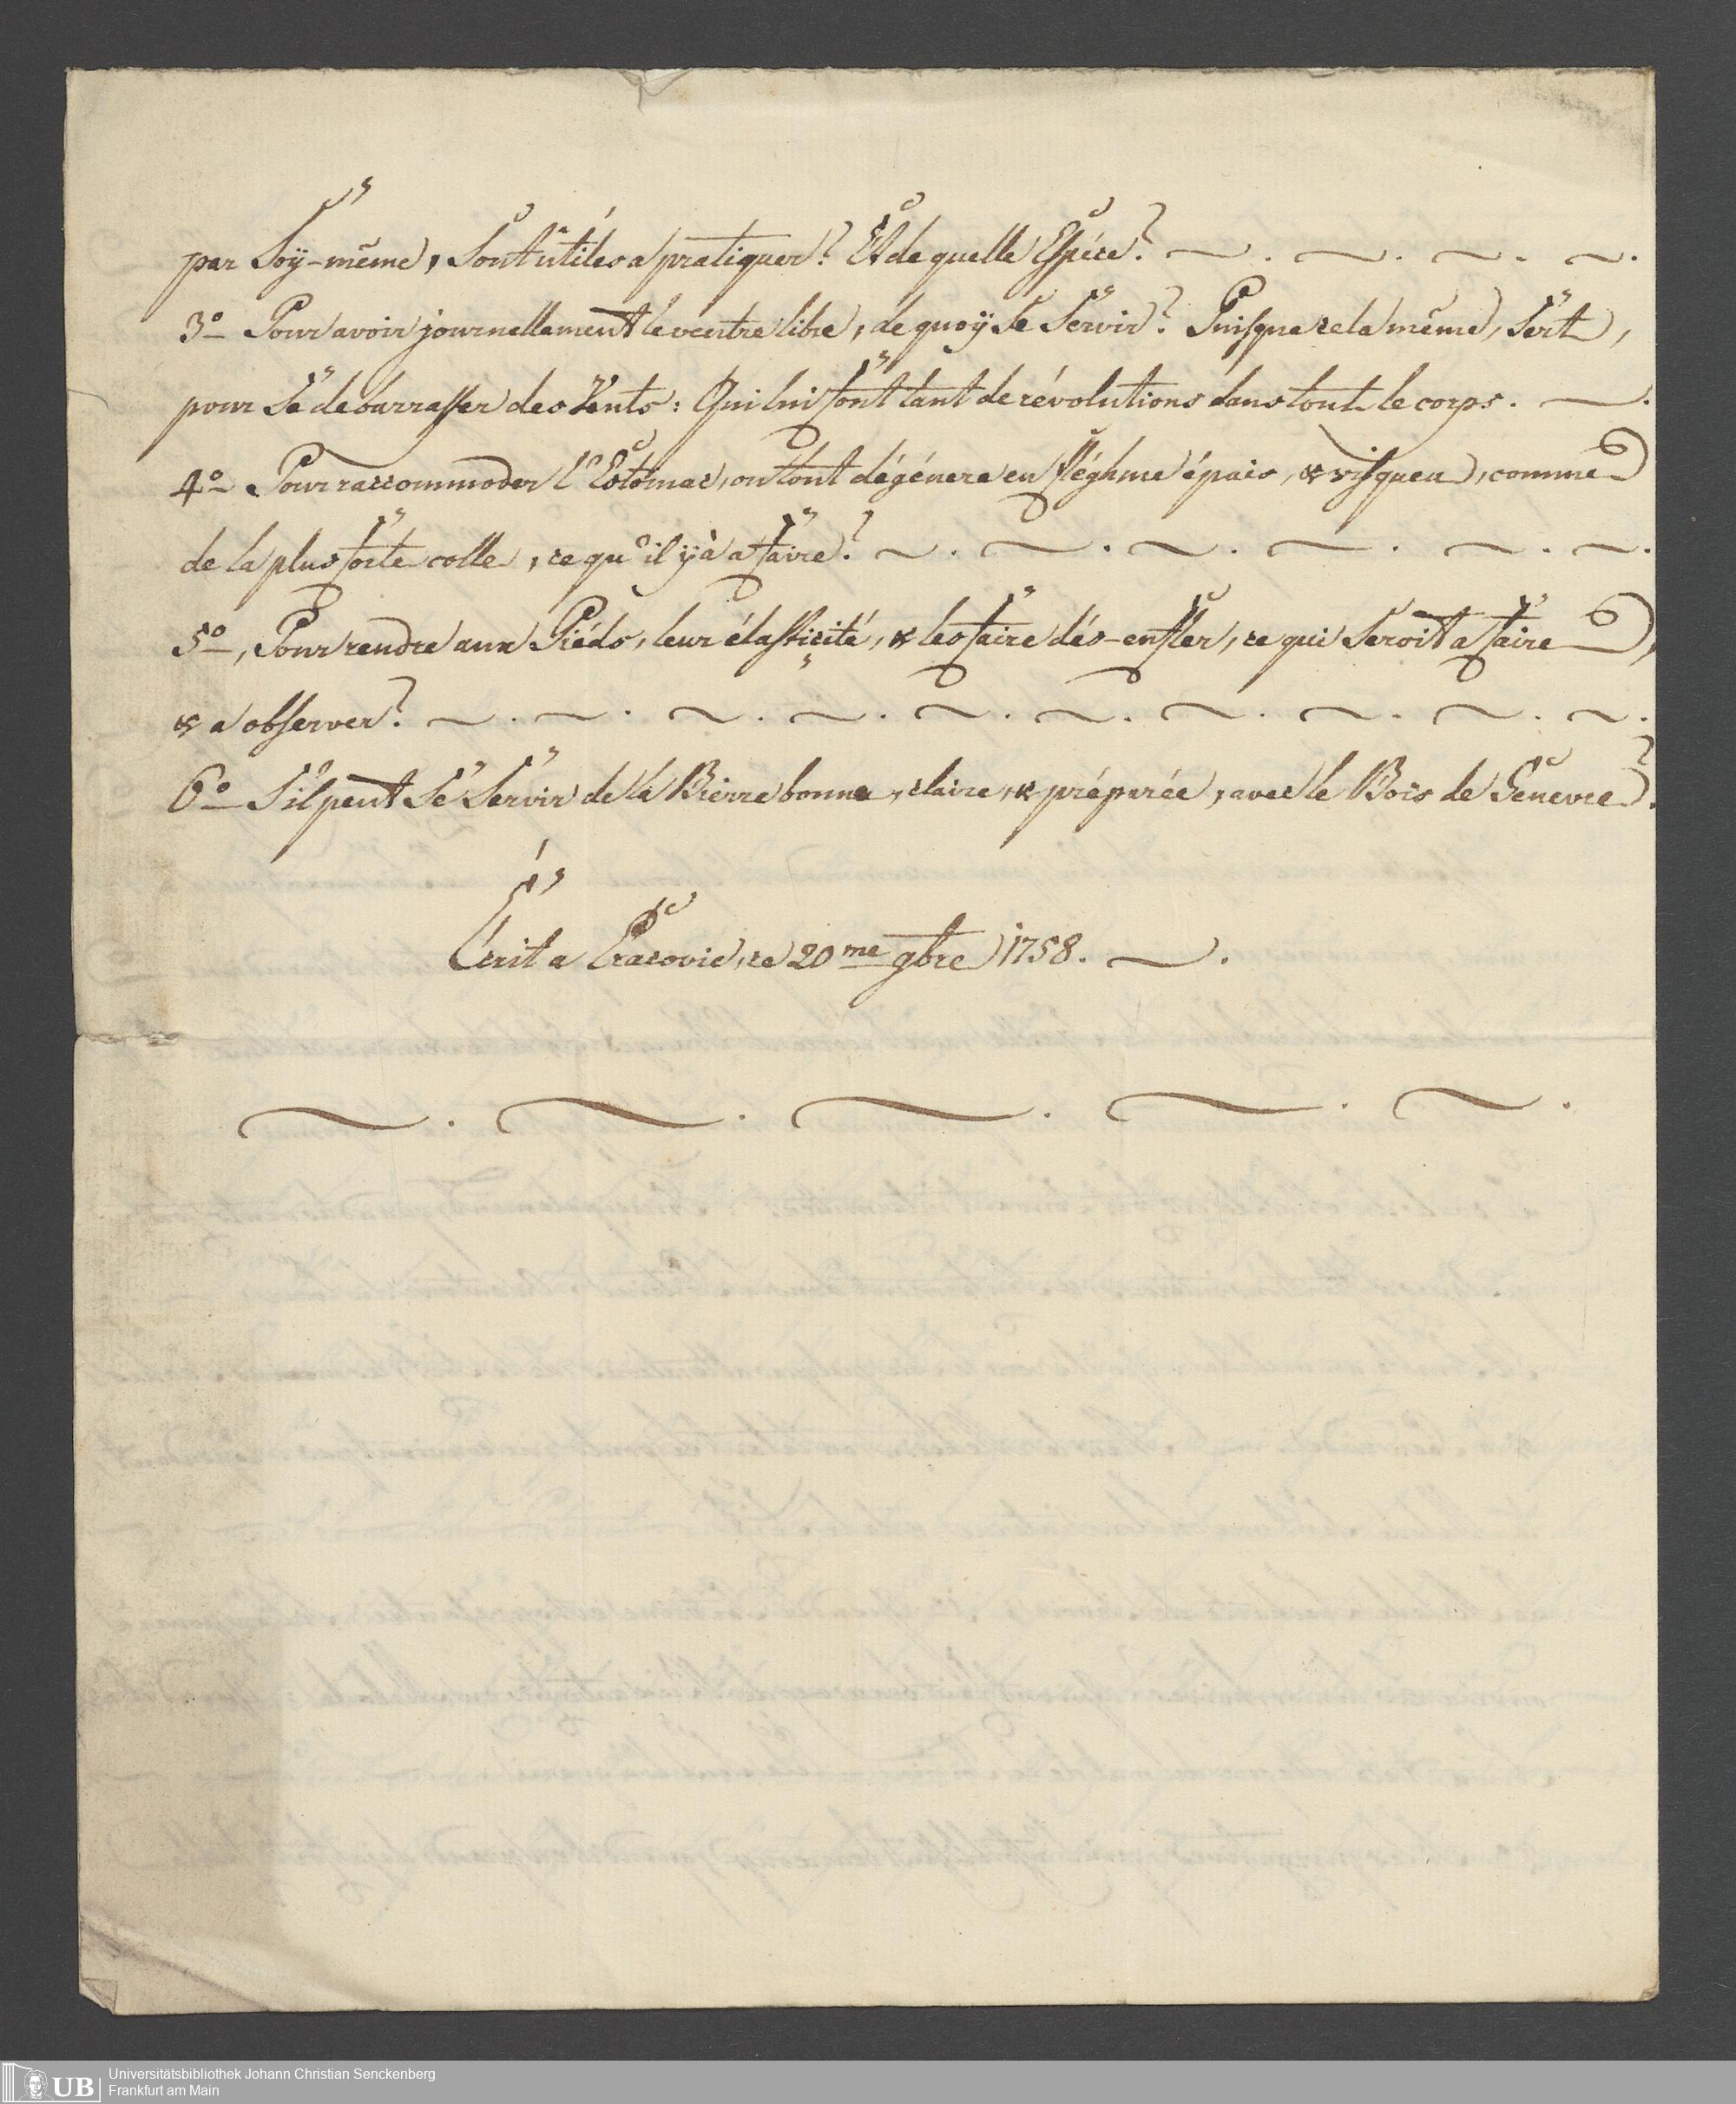 par Soÿ-même, Sont ûtiles a pratiquer? Et de quelle Espéce? ~ . ~ . ~ . ~ .
3º Pour avoir journellement le ventre libre, de quoÿ Se Servir? Puisque cela même, Sert,
pour Se debarrasser des Vents: Qui lui font tant de révolutions dans tout le corps. ~ .
4º Pour raccommoder l'Estomac, ou tout dégénere en fléghme épais, & visqueu, comme
de la plus forte colle, ce qu'il ÿ à a faire? ~ . ~ . ~ . ~ . ~ . ~ .
5º, Pour rendre aux Piéds, leur élasticité, & les faire dés-enfler, ce qui Seroit a faire,
& a observer? ~ . ~ . ~ . ~ . ~ . ~ . ~ . ~ . ~ . ~ .
6º S'il peut Se Servir de la Bierre bonne, claire, & préparée, avec le Bois de Genevre?
Ecrit a Cracovie, ce 20me 9bre 1758. ~ .
~ . ~ . ~ . ~ . ~ .
UB
Universitätsbibliothek Johann Christian Senckenberg
Frankfurt am Main